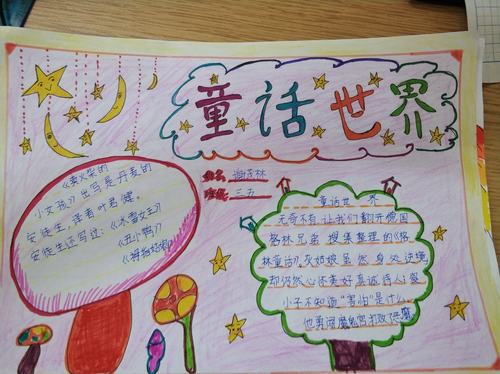 童话世界
姓名:谢
班级:三五
《卖火柴的
小女孩》出写是丹麦的
安徒生,译者叶君健,
安徒生还写过:《冰雪女王》
《丑小鸭》
《拇指姑娘》
童话世界
无奇不有,让我们翻开德国
格林兄弟搜集整理的《格
林童话》,灰姑娘虽然身处逆境
却仍然心怀美好真诚待人;傻
小子不知道“害怕”是什么,
他勇闯魔鬼宫打败了恶魔